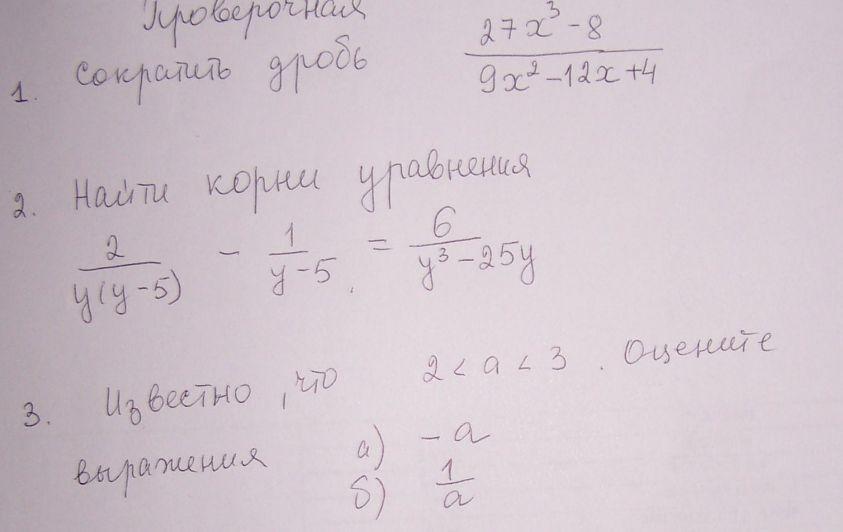 Проверочная
1. Сократить дробь (27x³-8)/(9x²-12x+4)
2. Найти корни уравнения
2/(y(y-5)) - 1/(y-5) = 6/(y³-25y)
3. Известно, что 2<a<3. Оцените
выражения а) -a
б) 1/a